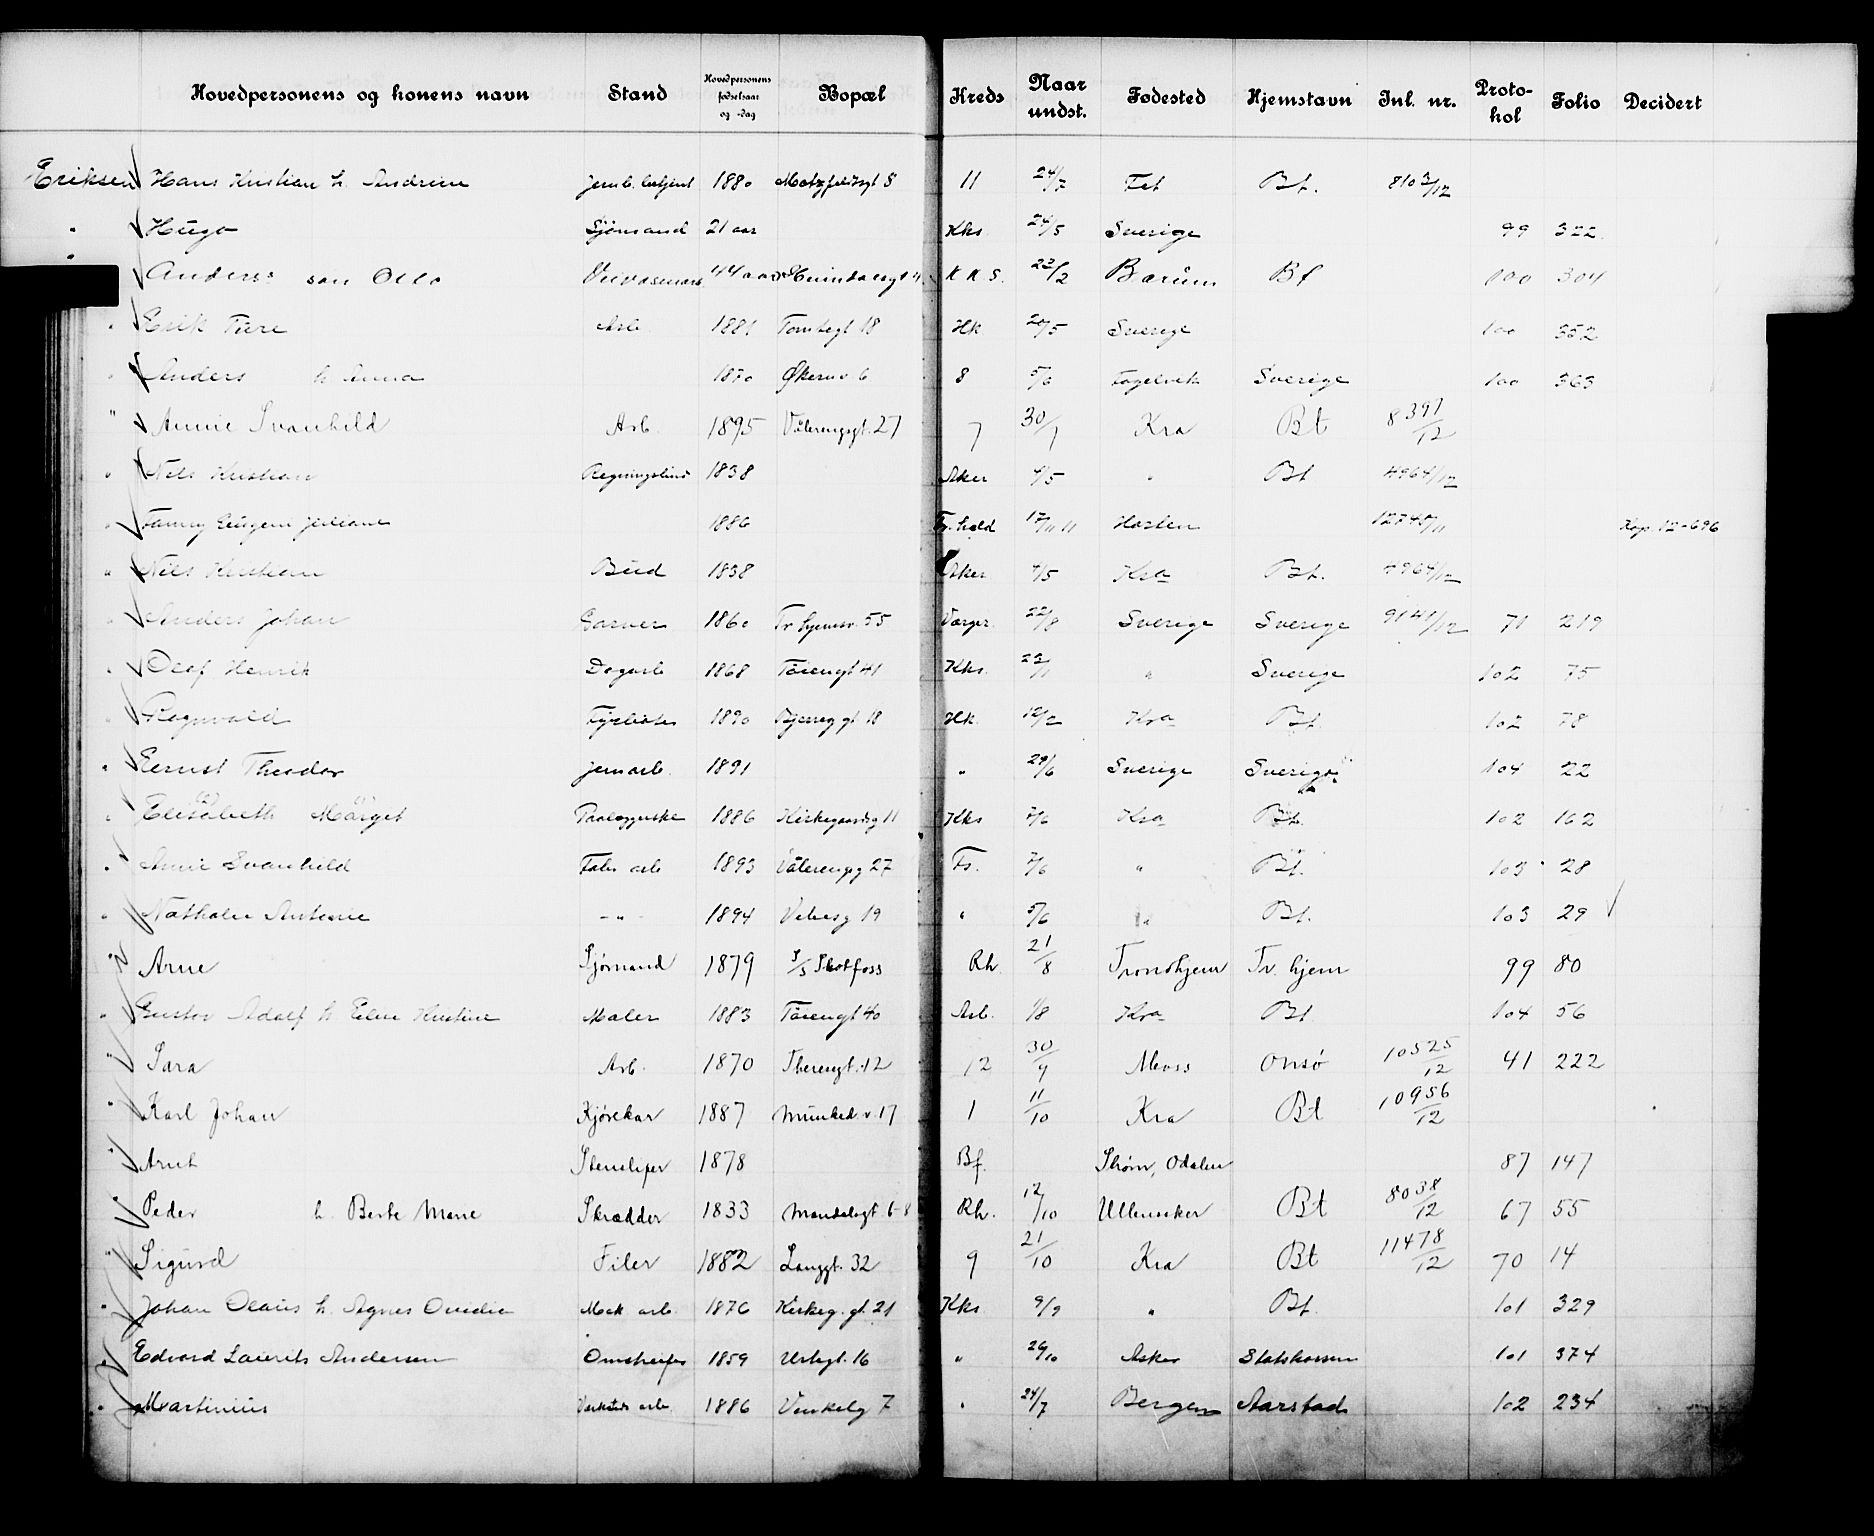 Hovedpersonens og konens navn Stand Hovedpersonens fødselsaar og -dag Bopæl Kreds Naar undst. Fødested Hjemstavn Inl. nr. Proto-kol Folio Decidert
Eriksen Hans Kristian h. Andrine 1880 Motzfeldtsgt 5 11 24/7 Fet Bt. 8103/12
" Hugo Sjømand 21 aar Kks. 24/5 Sverige 99 322
" Anders 44 aar K K S. 23/2 Bærum Bt 100 304
" Erik Ture Arb. 1881 Tomtegt 18 Hk 20/5 Sverige 100 352
" Anders h Anna 1870 Økernv 6 8 5/6 Sverige 100 363
" Annie Svanhild Arb. 1895 Vålerengsgt. 27 7 30/7 Kra Bt 8397/12
" Nils Kristian 1838 Aker 4/5 " Bt 4964/12
" Fanny Eugenie Juliane 1886 17/11 11 Horten 12745/11 Kop. 12-696
" Nils Kristian Bud 1838 Aker 4/5 Kra Bt. 4964/12
" Anders Johan Garver 1860 55 22/8 Sverige Sverige 9141/12 71 219
" Olaf Henrik Dagarb 1868 Tøiengt 41 Kks. 22/1 " Sverige 102 75
" Ragnvald Fyrbøter 1890 18 Hk. 12/2 Kra Bt. 102 78
" Ernst Theodor jernarb. 1891 " 29/6 Sverige Sverige 104 22
" Elisabeth Marget 1886 Kirkegaardsg 11 Kks 7/6 Kra Bt. 102 162
" Annie Svanhild Fabr arb 1893 Vålerengsg 27 Fs. 7/6 " Bt. 103 28
" Nathalie Antonie - " - 1894 19 " 5/6 " Bt. 103 29
" Arne Sjømand 1879 S/S Skotfoss Rh. 21/8 Trondhjem Tr. hjem 99 80
" Gustav Adolf h. Eline Kristine Maler 1883 Tøiengt 40 Arb. 1/8 Kra Bt 104 56
" Sara Arb. 1870 12 12 30/9 Moss Onsø 10525/12 41 222
" Karl Johan Kjørekar 1887 Munked. v. 17 1 11/10 Kra Bt 10956/12
" Arnt Stensliper 1878 Bf. Strøm, Odalen 87 147
" Peder h. Berte Marie Skrædder 1833 Mandalsgt. 6-8 Rh. 12/10 Ullensaker Bt 8038/12 67 55
" Sigurd Filer 1882 Langgt. 32 9 21/10 Kra Bt 11478/12 70 14
" Johan Olaus h. Agnes Ovidie Mek arb. 1876 Kirkeg. gt. 21 Kks 9/9 " Bt. 101 329
" Edvard Laurits Andersen Omstreifer 1859 Urtegt. 16 " 29/10 Asker Statskassen 101 374
" Martinius Verksteds arb. 1886 Vinkelg 7 " 24/7 Bergen Aarstad 102 234